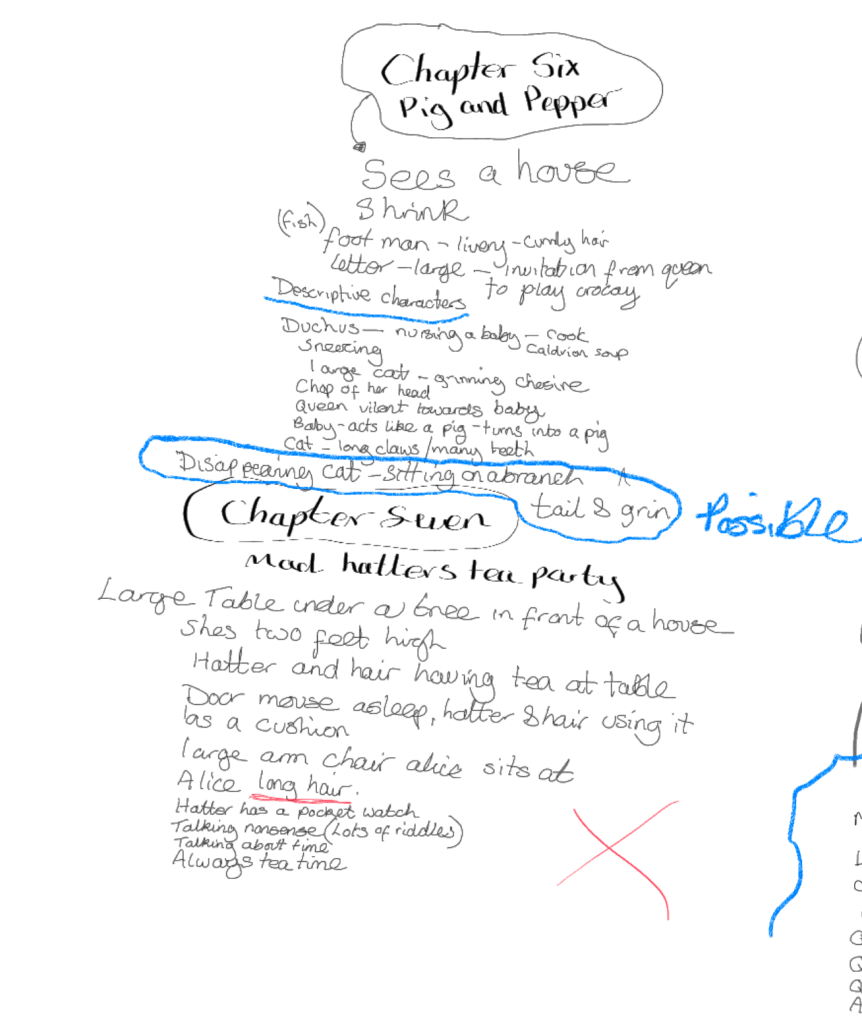 Chapter Six
Pig and Pepper
Sees a house
Shrink
(fish)
foot man - livery - curnly hair
Letter - large - invitation from queen
to play crocay
Descriptive characters
Duchus - nursing a baby - cook
Sneezing
Caldrion soup
large cat - grinning chesire
Chop of her head
Queen vilent towards baby
Baby - acts like a pig - turns into a pig
Cat - long claws / many teeth
Disappearing cat - sitting on a branch
tail & grin
Possible
Chapter Seven
Mad hatters tea party
Large Table under a tree in front of a house
shes two feet high
Hatter and hair having tea at table
Door mouse asleep, hatter & hair using it
as a cushion
large arm chair alice sits at
Alice long hair.
Hatter has a pocket watch
Talking nonsense (Lots of riddles)
Talking about time
Always tea time